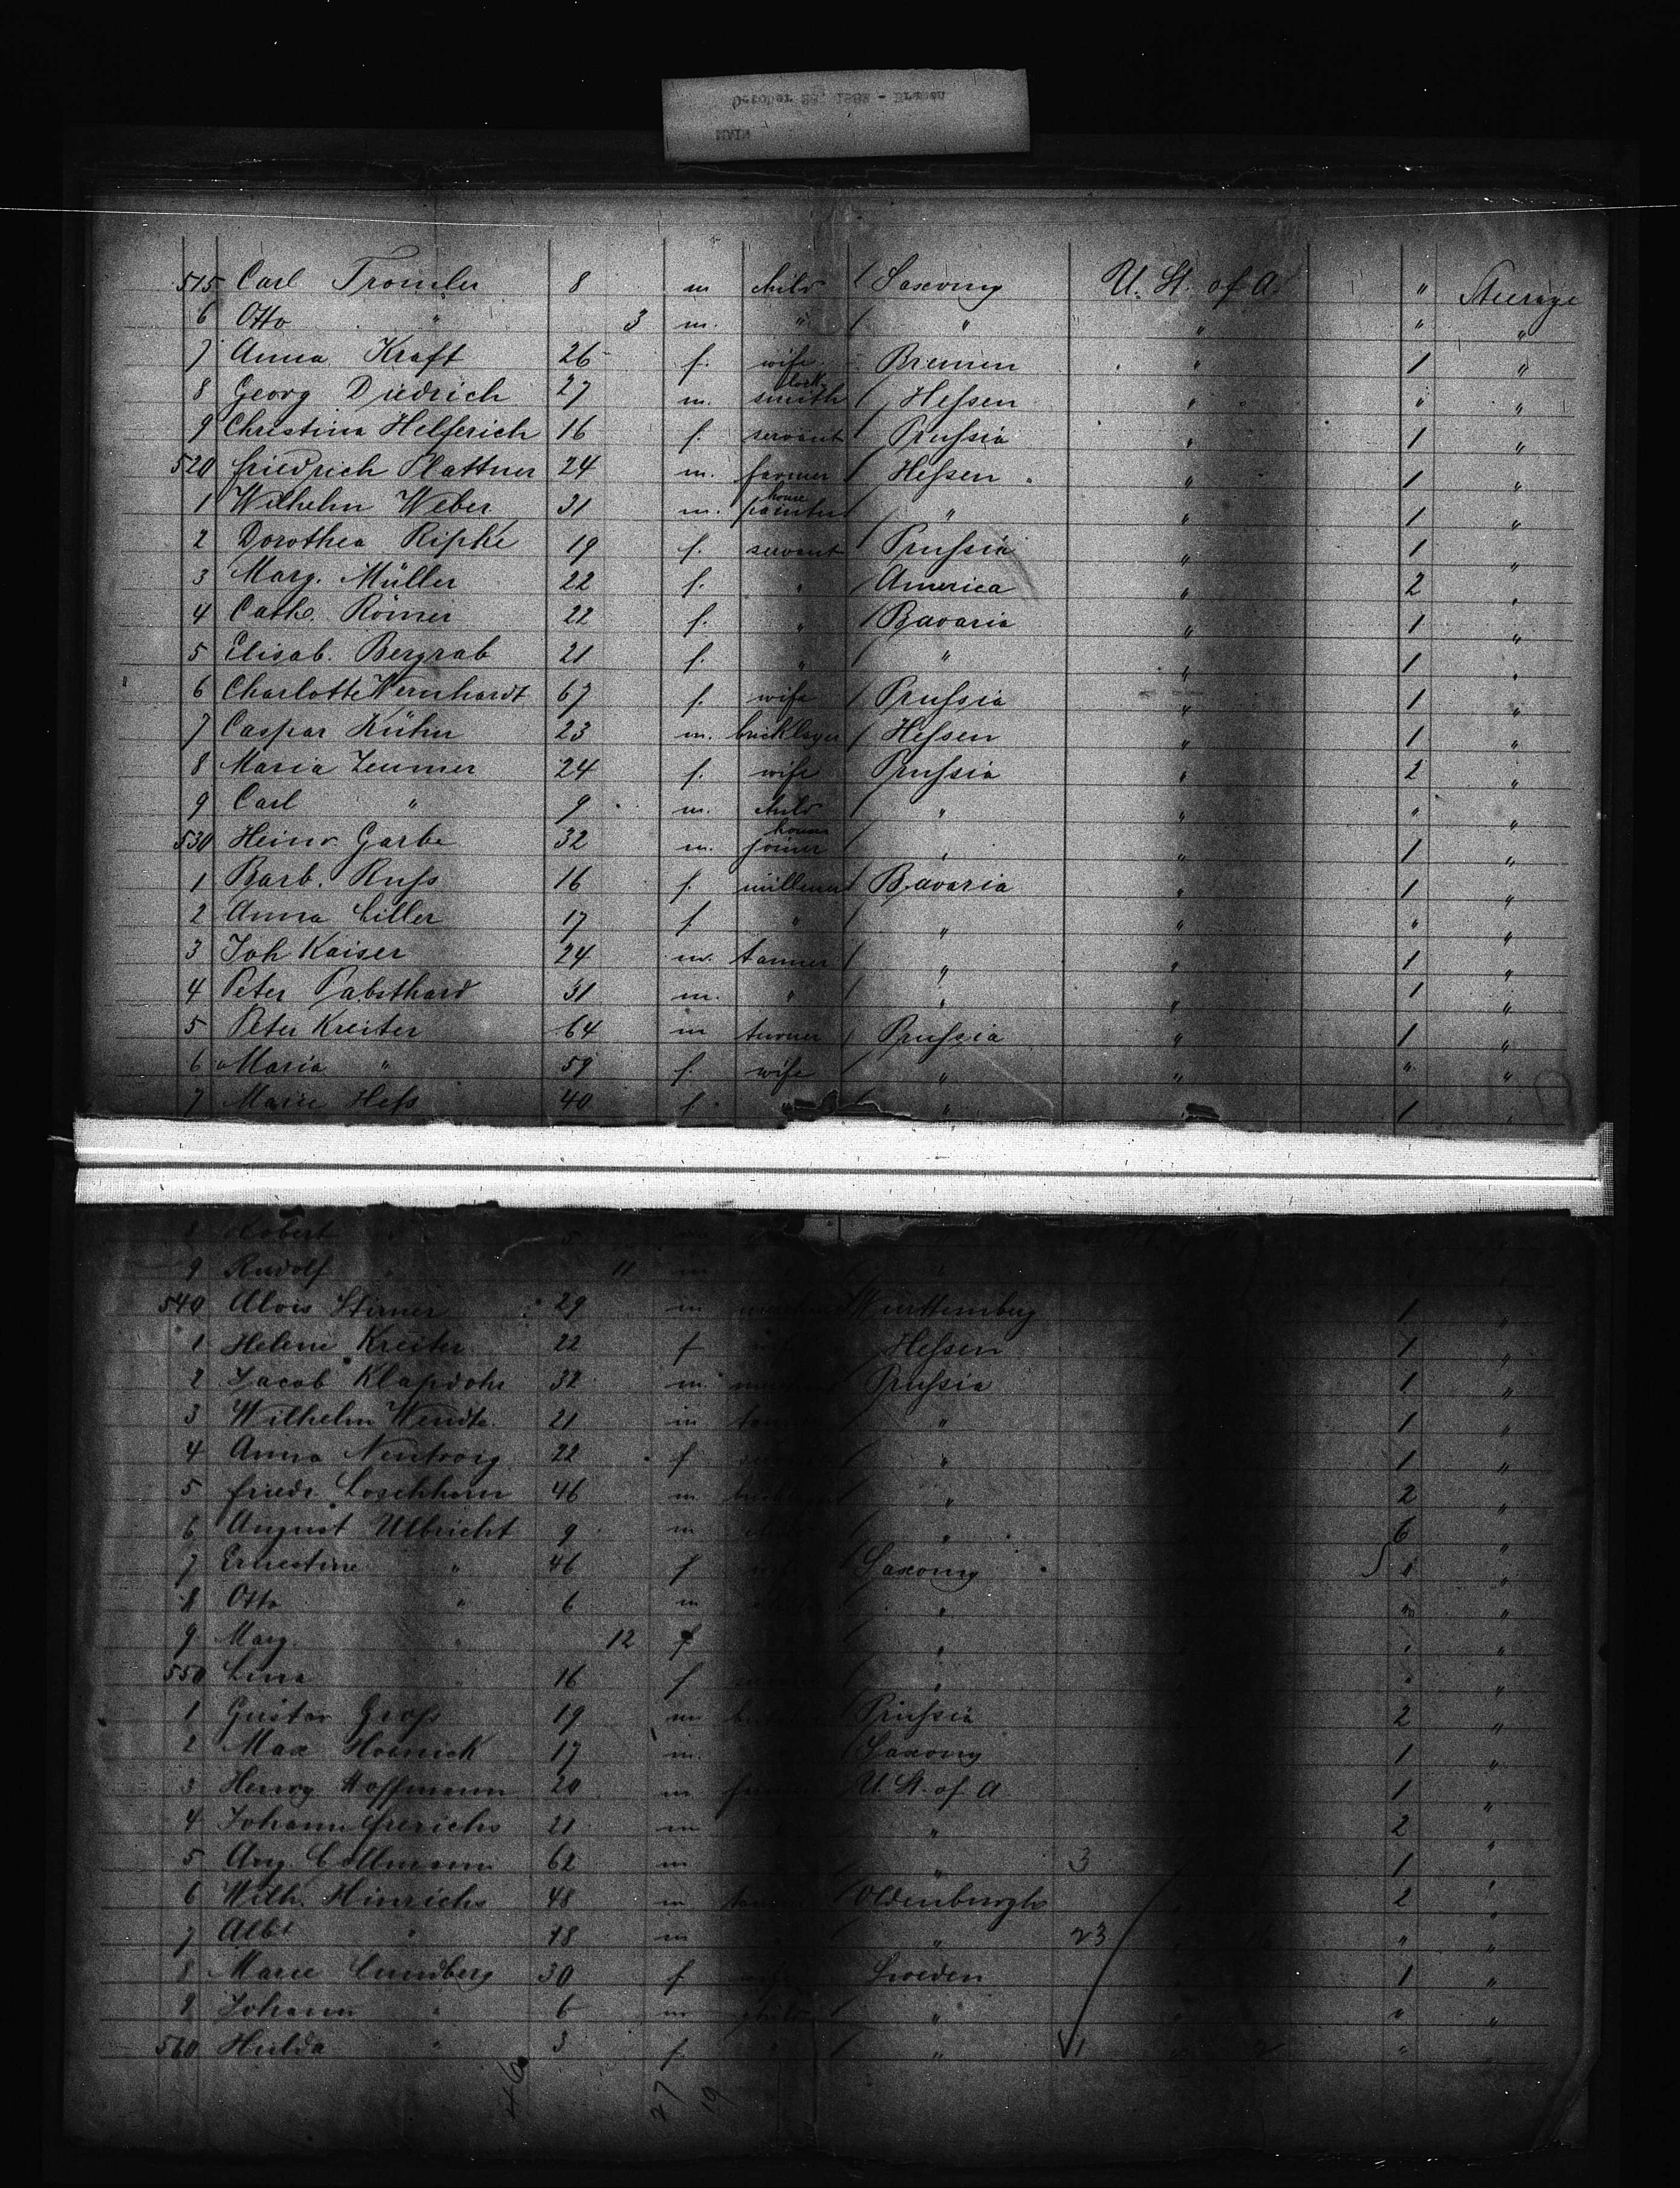 MAIN
October 28, 1882 - Bremen
515 Carl Tromler 8 m child / Saxony U. St. of A. " Steerage
6 Otto " 3 m. " / " " " "
7 Anna Kraft 26 f. wife Bremen " 1 "
8 Georg Diedrich 27 m. lock smith / Heſsen " " "
9 Christina Helferich 16 f. servant / Pruſsia " 1 "
520 Friedrich Plattner 24 m. farmer / Heſsen " 1 "
1 Wilhelm Weber 31 m. house painter / " " 1 "
2 Dorothea Ripke 19 f. servant / Pruſsia " 1 "
3 Marg. Müller 22 f. " / America " 2 "
4 Cathe. Römer 22 f. " / Bavaria " 1 "
5 Elisab. Bergrab 21 f. " / " " 1 "
6 Charlotte Wernhardt 67 f. wife / Pruſsia " 1 "
7 Caspar Kühn 23 m. bricklayer / Heſsen " 1 "
8 Maria Zeumer 24 f. wife Pruſsia " 2 "
9 Carl " 9 m. child / " " " "
530 Heinr Garbe 32 m. house joiner / " " 1 "
1 Barb. Ruſs 16 f. milliner / Bavaria " 1 "
2 Anna Liller 17 f " / " " " "
3 Joh Kaiser 24 m. tanner / " " 1 "
4 Peter Pabsthard 31 m. " / " " 1 "
5 Peter Kreiter 64 m turner / Pruſsia " 1 "
6 Maria " 59 f. wife " " " "
7 Marie Heſs 40 f. " / " " 1 "
8 Robert " 5
9 Rudolf " 11 m "
540 Alois Stirner 29 m Wurttemberg 1 "
1 Helene Kreiter 22 f Heſsen 1 "
2 Jacob Klapdohr 32 m. Pruſsia 1 "
3 Wilhelm Wendte 21 m / " 1 "
4 Anna 22 f / " 1 "
5 Friedr. Loschhorn 46 m bricklayer " 2 "
6 August Ulbricht 9 m / " 6 "
7 Ernestine " 46 f / Saxony "
8 Otto " 6 m / " " "
9 Marg. " 12 f / " " "
550 Lina " 16 f / " " "
1 Gustav Groſs 19 m / Pruſsia 2 "
2 Max Hoenick 17 m. / Saxony 1 "
3 Henry Hoffmann 20 m farmer / U. St. of A 1 "
4 Johann Frerichs 21 m " 2 "
5 Aug. Collmann 62 m " 3 1 "
6 Wilh. Hinrichs 48 m / Oldenburgh 2 "
7 Albt " 18 m / " 23 " "
8 Marie Lundberg 30 f Sweden 1 "
9 Johann " 6 m child / " " "
560 Hulda " 3 f. " / " 1 " "
27 19